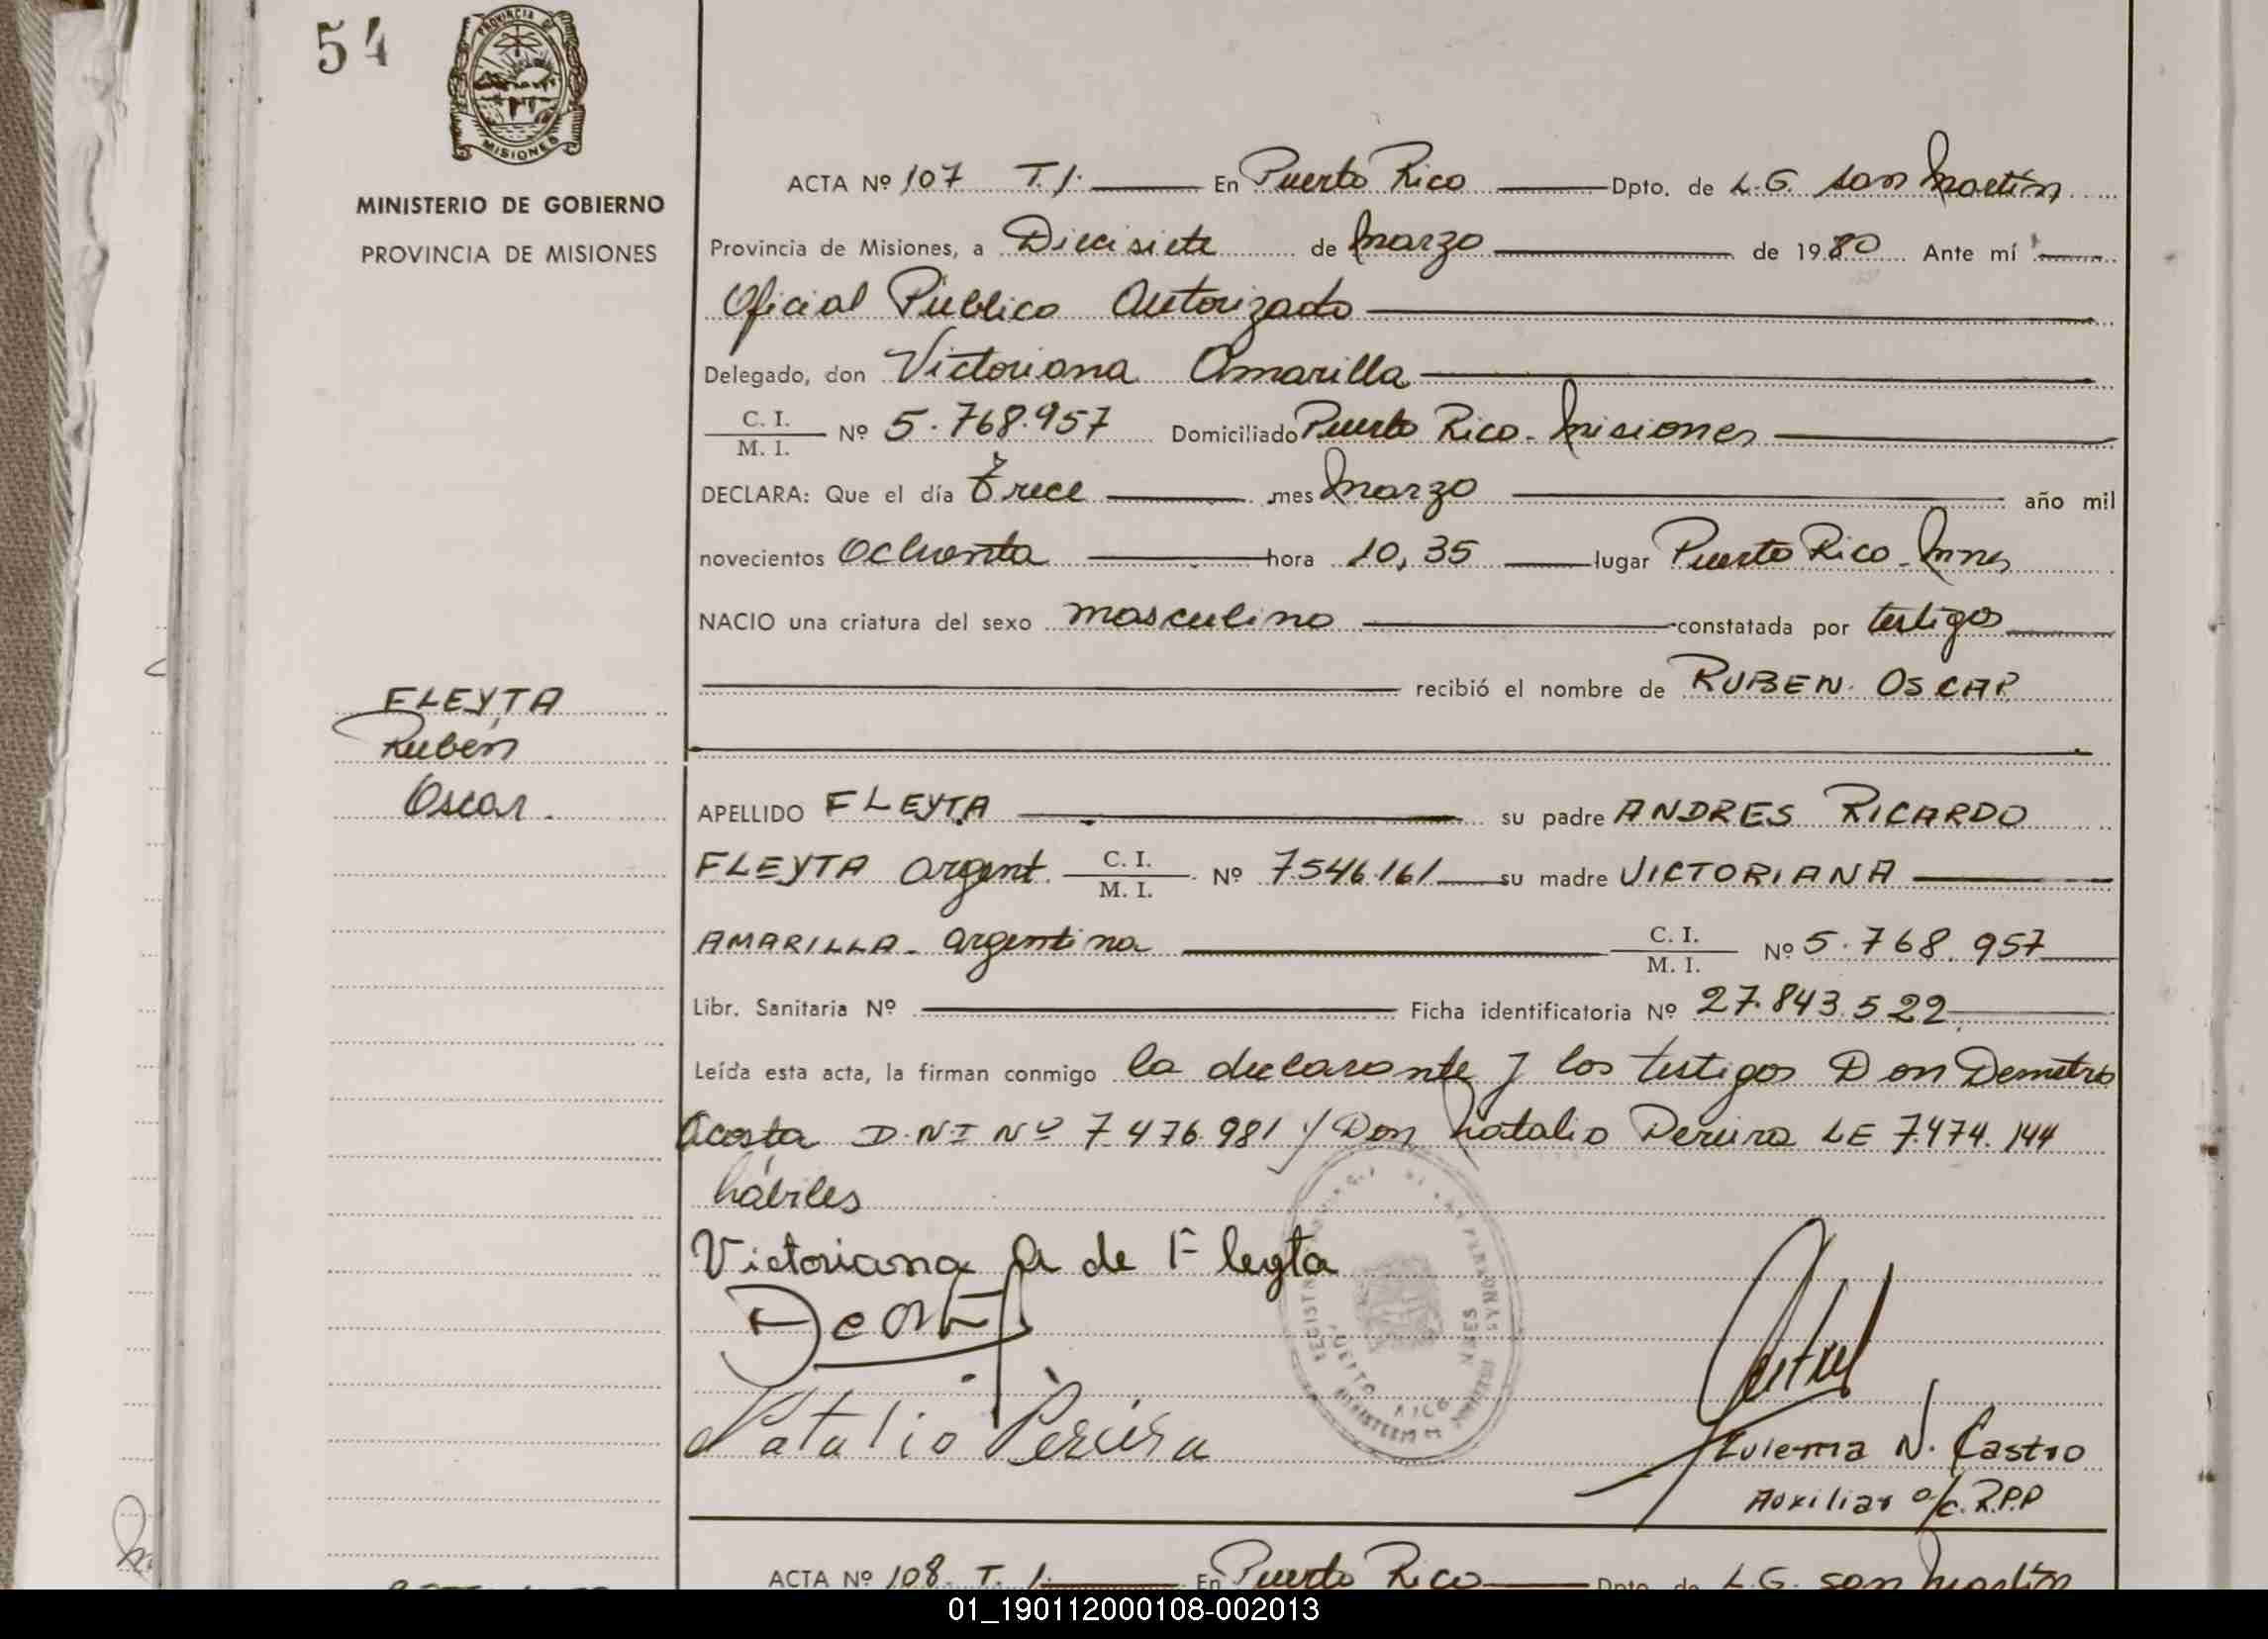 54
PROVINCIA DE
MISIONES
MINISTERIO DE GOBIERNO
PROVINCIA DE MISIONES
FLEYTA
Rubén
Oscar.
ACTA Nº 107 T.1. En Puerto Rico Dpto. de L.G. San Martín
Provincia de Misiones, a Diecisiete de Marzo de 1980 Ante mí
Oficial Público Autorizado
Delegado, don Victoriana Amarilla
C. I.
M. I. Nº 5.768.957 Domiciliado Puerto Rico - Misiones
DECLARA: Que el día Trece mes Marzo año mil
novecientos Ochenta hora 10,35 lugar Puerto Rico - Mnes
NACIO una criatura del sexo masculino constatada por testigos
recibió el nombre de RUBEN OSCAR
APELLIDO FLEYTA su padre ANDRES RICARDO
FLEYTA Argent. C. I. M. I. Nº 7.546.161 su madre VICTORIANA
AMARILLA - argentina C. I. M. I. Nº 5.768.957
Libr. Sanitaria Nº Ficha identificatoria Nº 27.843.522
Leída esta acta, la firman conmigo la declarante y los testigos Don Demetrio
Acosta D.N.I Nº 7.476.981 y Don Natalio Pereira LE 7.474.144
hábiles
Victoriana A de Fleyta
Natalio Pereira
N. Castro
Auxiliar a/c. R.P.P
ACTA Nº 108 T. 1. En Puerto Rico Dpto. de L.G. San Martín
01_190112000108-002013